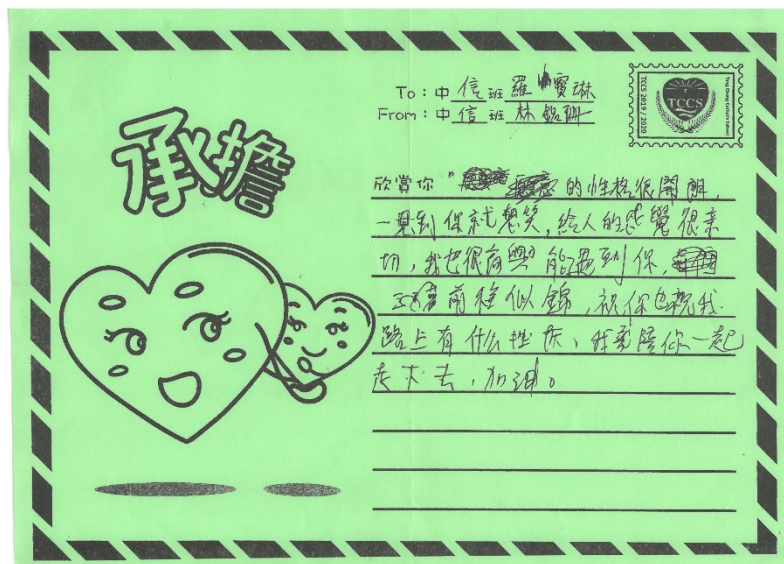 承擔
To：中 信 班 羅寶琳
From：中 信 班 林銘珊
TCCS 2019 / 2020
TCCS
欣賞你 的性格很開朗，
一見到你就想笑，給人的感覺很亲
切，我也很高興能遇到你，
前程似錦，祝你也祝我
路上有什么挫折，我要陪你一起
走下去，加油。